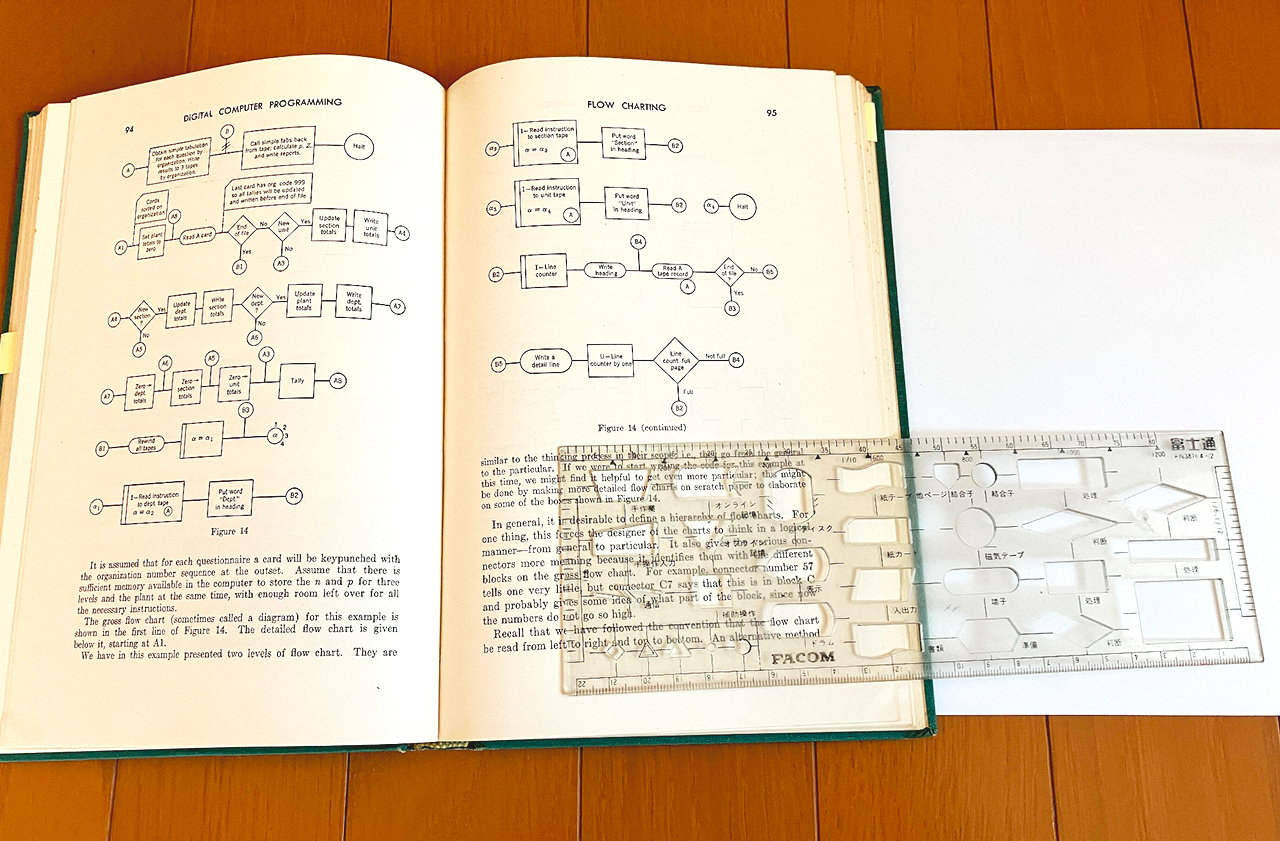 DIGITAL COMPUTER PROGRAMMING
94
A
Obtain simple tabulation
for each question by
organization. Write
results to 3 tapes
by organization.
B
Call simple tabs back
from tape; calculate p, Σ,
and write reports.
Halt
Cards
sorted on
organization
Last card has org. code 999
so all tallies will be updated
and written before end of file
A1
Set plant
totals to
zero
A8
Read A card
End
of file
No
Yes
B1
New
unit
Yes
No
A3
Update
section
totals
Write
unit
totals
A4
A4
New
section
?
Yes
No
A5
Update
dept.
totals
Write
section
totals
New
dept.
?
Yes
No
A6
Update
plant
totals
Write
dept.
totals
A7
Zero→
dept.
totals
A6
Zero→
section
totals
A5
Zero→
unit
totals
A3
Tally
A8
B1
Rewind
all tapes
α = α₁
B3
α
1
2
3
4
α₁
I—Read instruction
to dept. tape
α = α₂
A
Put word
"Dept."
in heading
B2
Figure 14
It is assumed that for each questionnaire a card will be keypunched with
the organization number sequence at the outset. Assume that there is
sufficient memory available in the computer to store the n and p for three
levels and the plant at the same time, with enough room left over for all
the necessary instructions.
The gross flow chart (sometimes called a diagram) for this example is
shown in the first line of Figure 14. The detailed flow chart is given
below it, starting at A1.
We have in this example presented two levels of flow chart. They are
FLOW CHARTING
95
I—Read instruction
to section tape
α = α₃
A
Put word
"Section"
in heading
B2
α₃
I—Read instruction
to unit tape
α = α₄
A
Put word
"Unit"
in heading
B2
α₄
Halt
B2
I—Line
counter
Write
heading
B4
Read A
tape record
A
End
of file
?
No
B5
Yes
B3
B5
Write a
detail line
U—Line
counter by one
Line
count full
page
Not full
B4
Full
B2
Figure 14 (continued)
similar to the thinking process in their scope; i.e., they go from the general
to the particular. If we were to start writing the code for this example at
this time, we might find it helpful to get even more particular; this might
be done by making more detailed flow charts on scratch paper to elaborate
on some of the boxes shown in Figure 14.
In general, it is desirable to define a hierarchy of flow charts. For
one thing, this forces the designer of the charts to think in a logical
manner—from general to particular. It also gives the various con-
nectors more meaning because it identifies them with different
blocks on the gross flow chart. For example, connector number 57
tells one very little, but connector C7 says that this is in block C
and probably gives some idea of what part of the block, since now
the numbers do not go so high.
Recall that we have followed the convention that the flow chart
be read from left to right and top to bottom. An alternative method
富士通
紙テープ
他ページ結合子
結合子
処理
判断
手作業
オンライン
記憶
ディスク
紙カード
磁気テープ
判断
処理
手操作入力
表示
端子
処理
通信
補助操作
入出力
ドラム
書類
準備
判断
FACOM